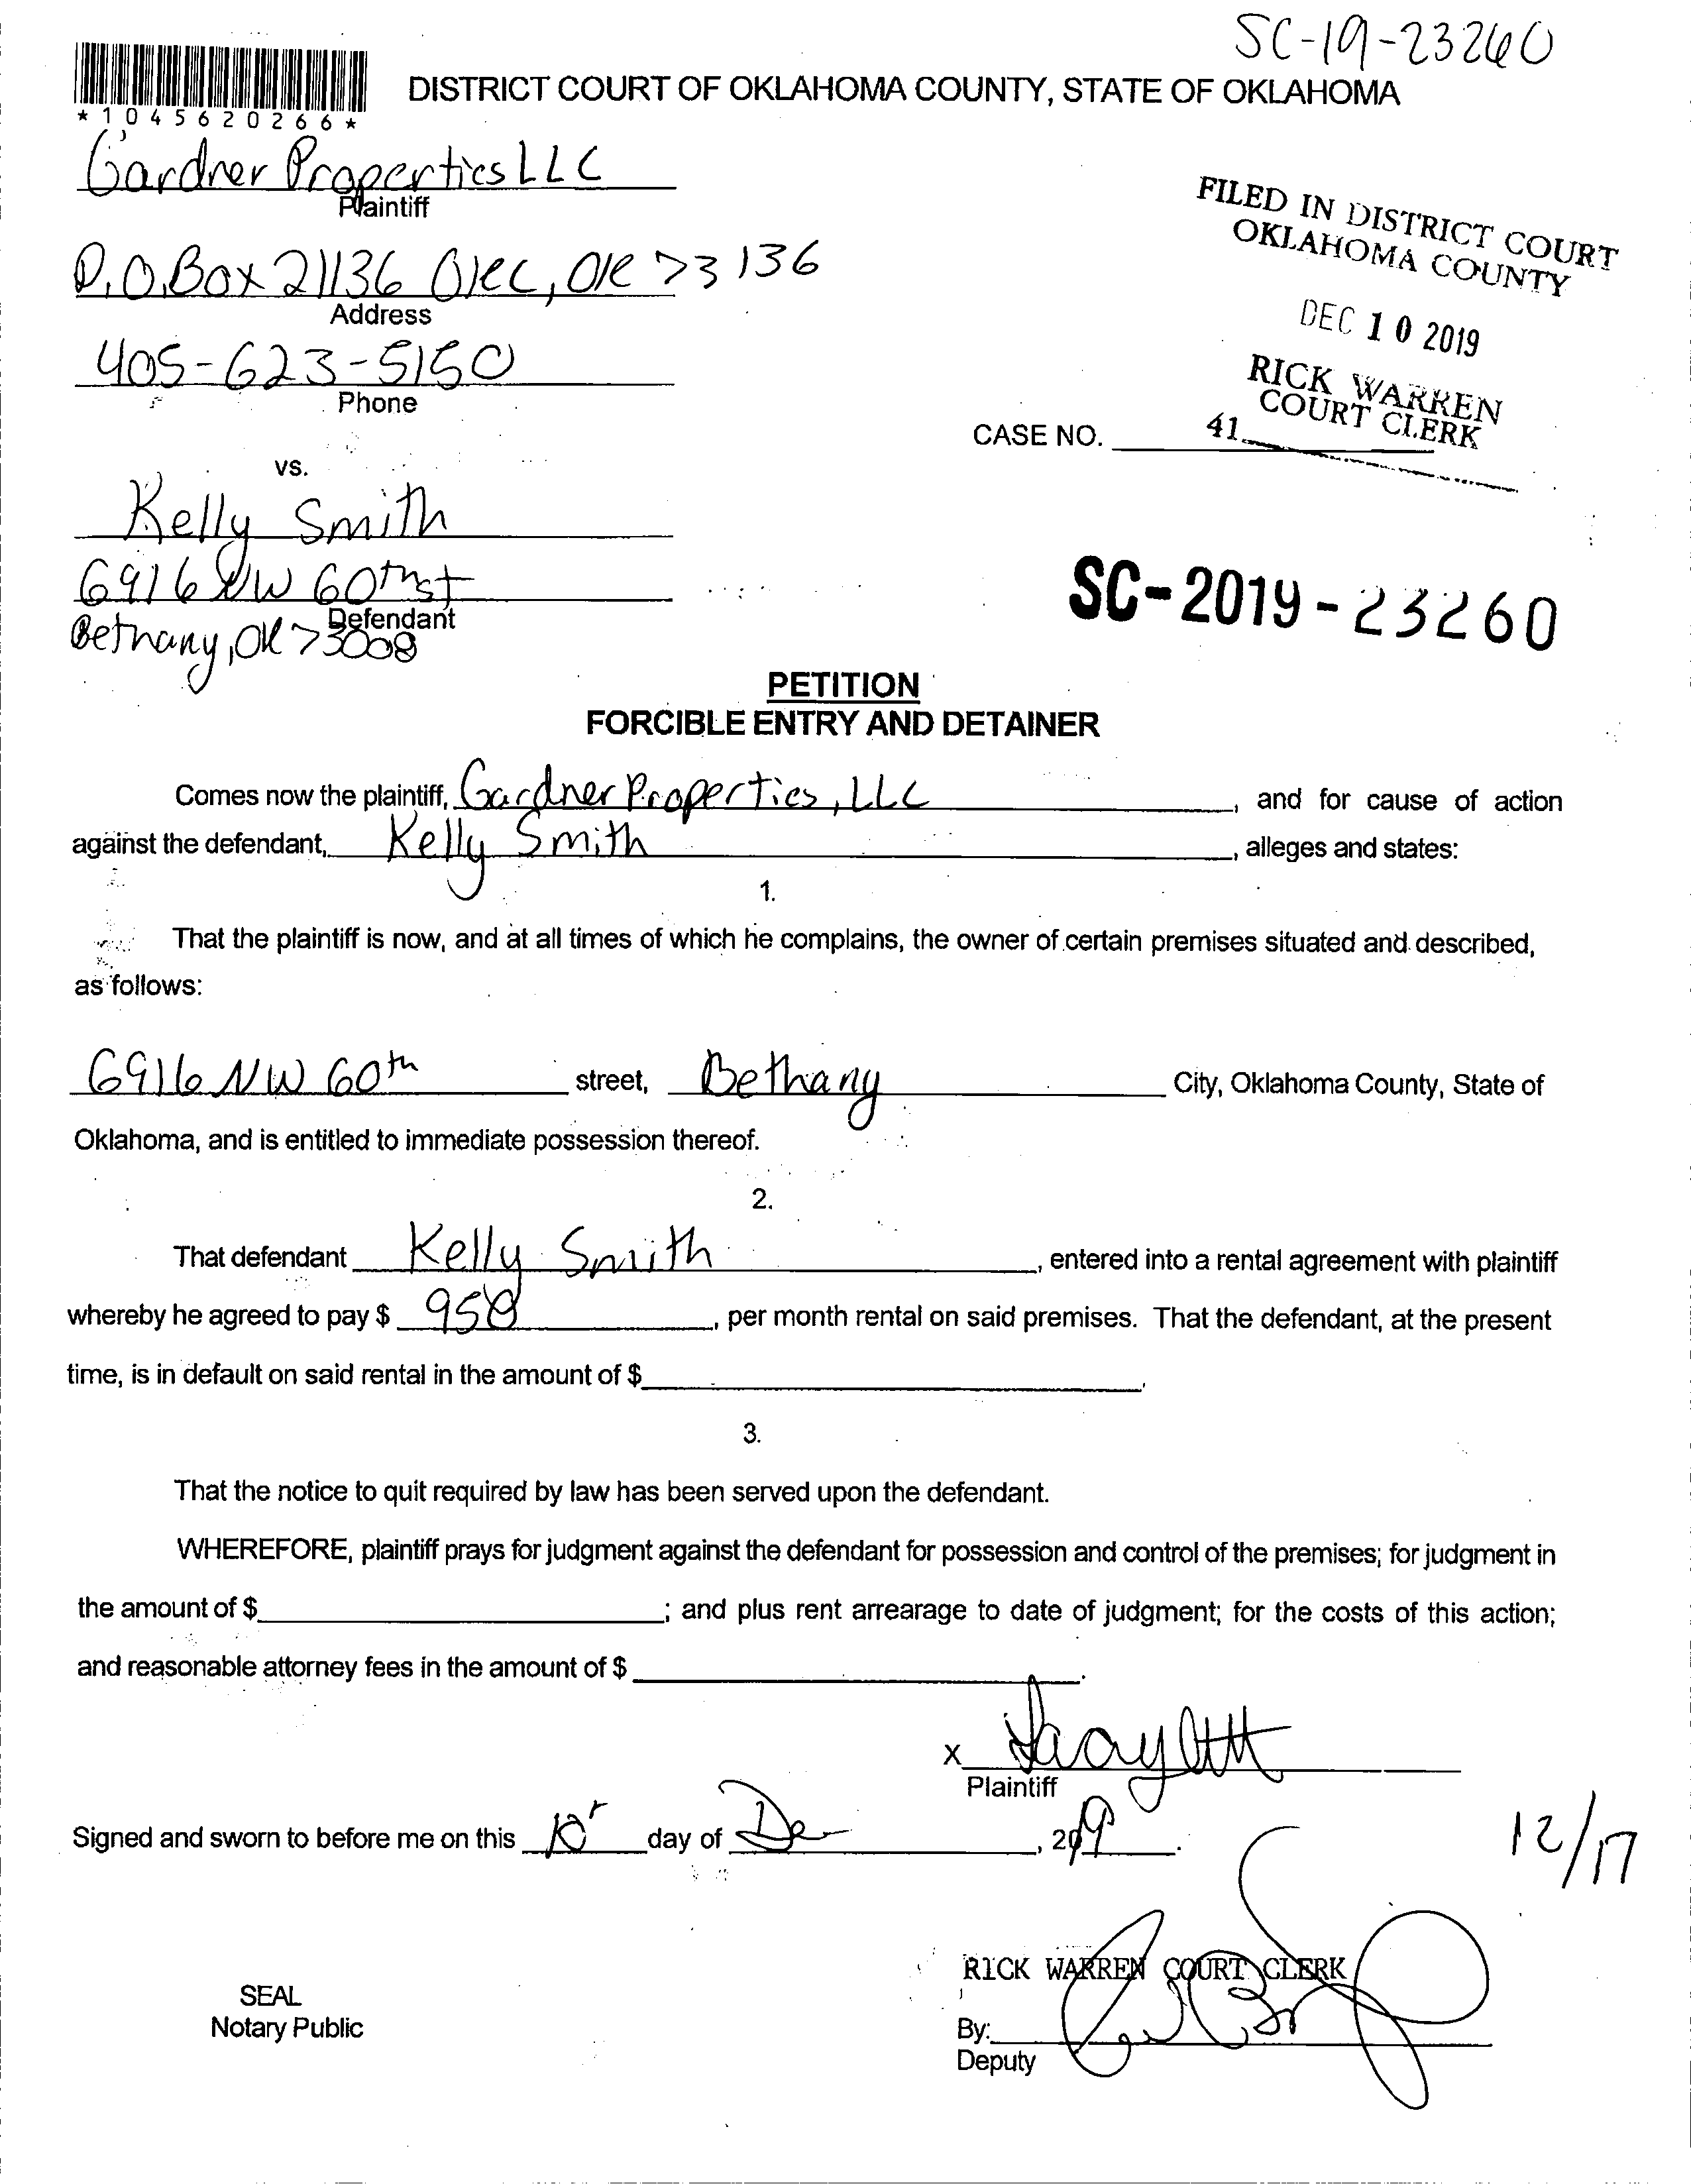 SC-19-23260
*1045620266*
DISTRICT COURT OF OKLAHOMA COUNTY, STATE OF OKLAHOMA
Gardner Properties LLC
Plaintiff
P.O. Box 21136 OKC, OK 73136
Address
405-623-5150
Phone
FILED IN DISTRICT COURT
OKLAHOMA COUNTY
DEC 10 2019
RICK WARREN
COURT CLERK
41
CASE NO.
vs.
Kelly Smith
6916 NW 60th st
Defendant
Bethany, OK 73008
SC-2019-23260
PETITION
FORCIBLE ENTRY AND DETAINER
Comes now the plaintiff, Gardner Properties, LLC, and for cause of action
against the defendant, Kelly Smith, alleges and states:
1.
That the plaintiff is now, and at all times of which he complains, the owner of certain premises situated and described,
as follows:
6916 NW 60th street, Bethany City, Oklahoma County, State of
Oklahoma, and is entitled to immediate possession thereof.
2.
That defendant Kelly Smith, entered into a rental agreement with plaintiff
whereby he agreed to pay $ 950, per month rental on said premises. That the defendant, at the present
time, is in default on said rental in the amount of $
3.
That the notice to quit required by law has been served upon the defendant.
WHEREFORE, plaintiff prays for judgment against the defendant for possession and control of the premises; for judgment in
the amount of $ ; and plus rent arrearage to date of judgment; for the costs of this action;
and reasonable attorney fees in the amount of $ .
X
Plaintiff
Signed and sworn to before me on this 10 day of De, 2019.
12/17
RICK WARREN COURT CLERK
SEAL
Notary Public
By:
Deputy